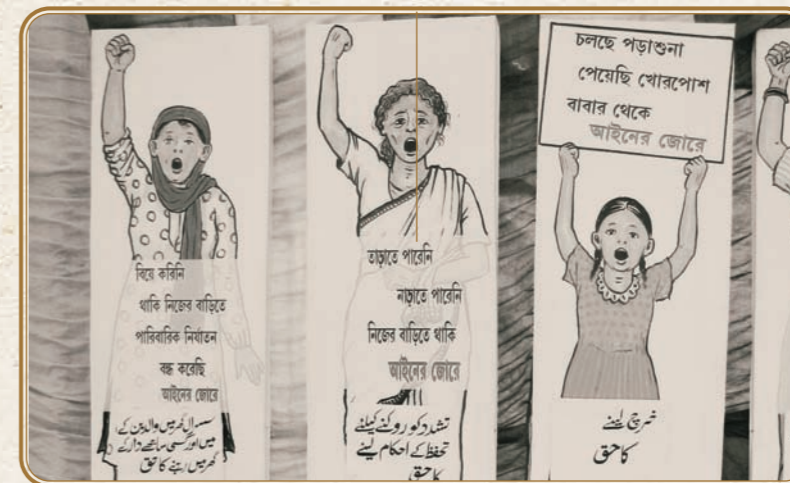 বিয়ে করিনি
থাকি নিজের বাড়িতে
পারিবারিক নির্যাতন
বন্ধ করেছি
আইনের জোরে
سسرال گھر میں والدین کے،
میں اور کسی ساجھے داری کے
گھر میں رہنے کا حق
তাড়াতে পারেনি
নাড়াতে পারেনি
নিজের বাড়িতে থাকি
আইনের জোরে
تشدد کو روکنے کیلئے
تحفظ کے احکام لینے
کا حق
চলছে পড়াশুনা
পেয়েছি খোরপোশ
বাবার থেকে
আইনের জোরে
خرچ لینے
کا حق